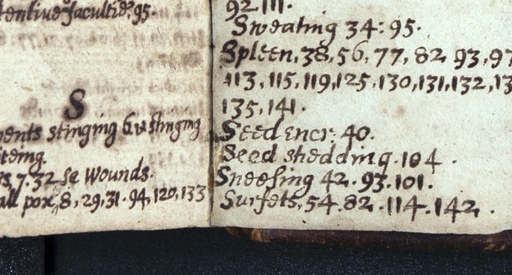 tentive facultie 95.
S
ents stinging 6. v stinging
iteing
7. 32 se Wounds.
all pox, 8, 29, 31. 94, 120, 133
92. 111.
Sweating 34: 95.
Spleen, 38, 56, 77, 82 93, 97
113, 115, 119, 125, 130, 131, 132, 13
135, 141.
Seed encr: 40.
Seed shedding. 104.
Sneesing 42. 93. 101.
Surfets, 54. 82. 114. 142.